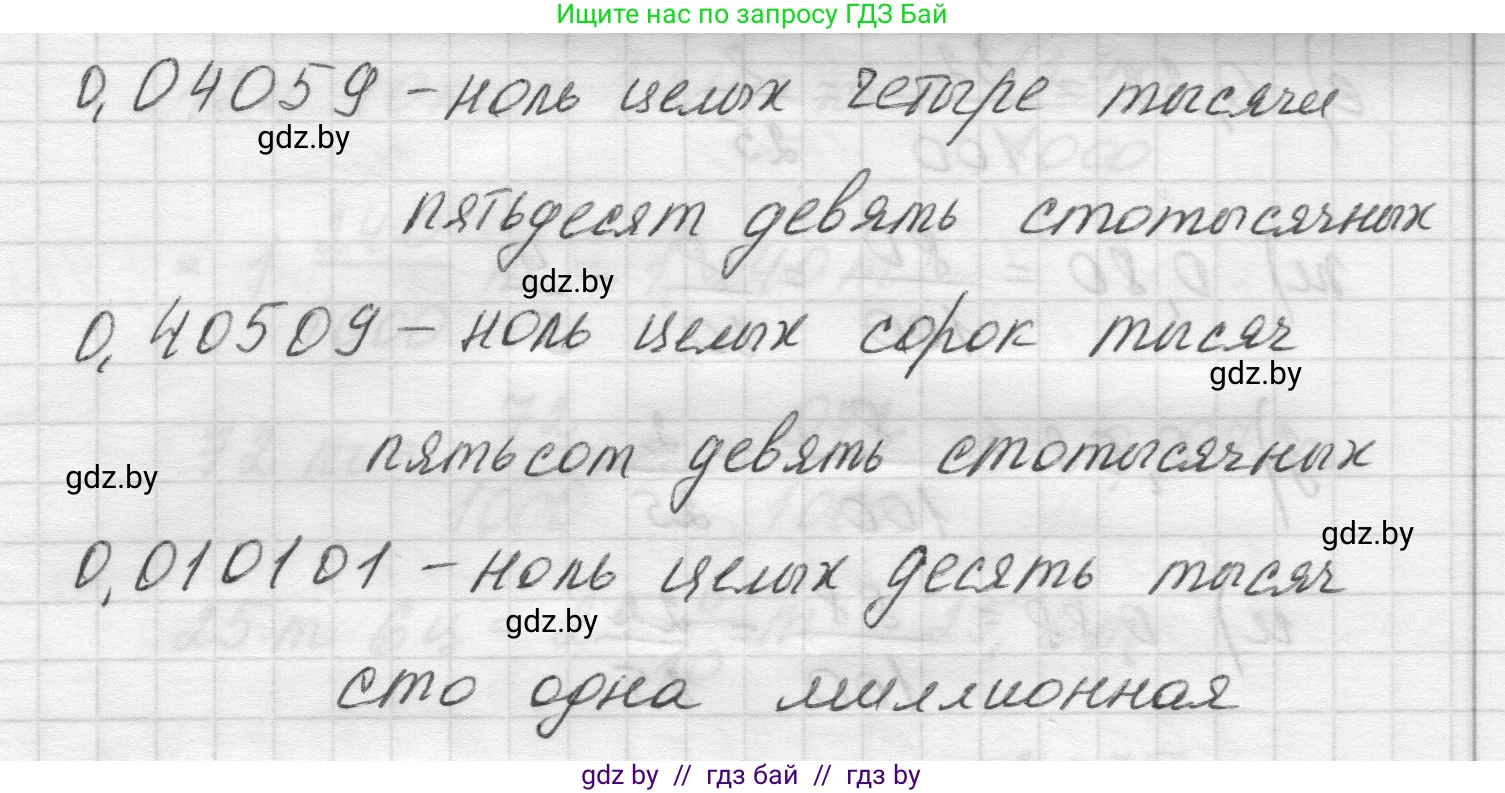 Ищите нас по запросу ГДЗ Бай
0,04059 – ноль целых четыре тысячи
gdz.by
пятьдесят девять стотысячных
gdz.by
0,40509 – ноль целых сорок тысяч
gdz.by
пятьсот девять стотысячных
gdz.by
gdz.by
0,010101 – ноль целых десять тысяч
gdz.by
сто одна миллионная
gdz by // гдз бай // гдз by